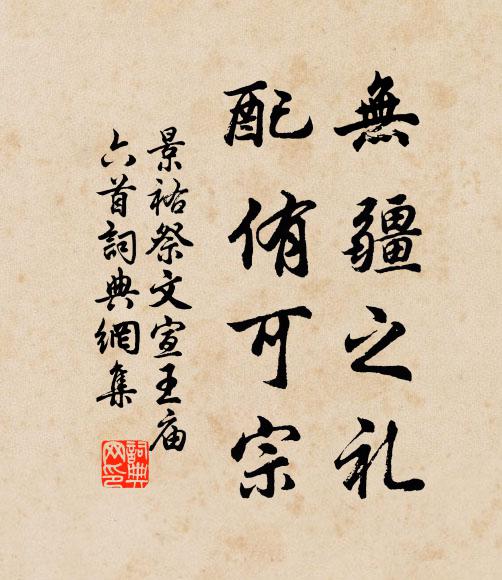 無疆之礼
配侑可宗
景祐祭文宣王庙
六首詞典網集
詞典
网印